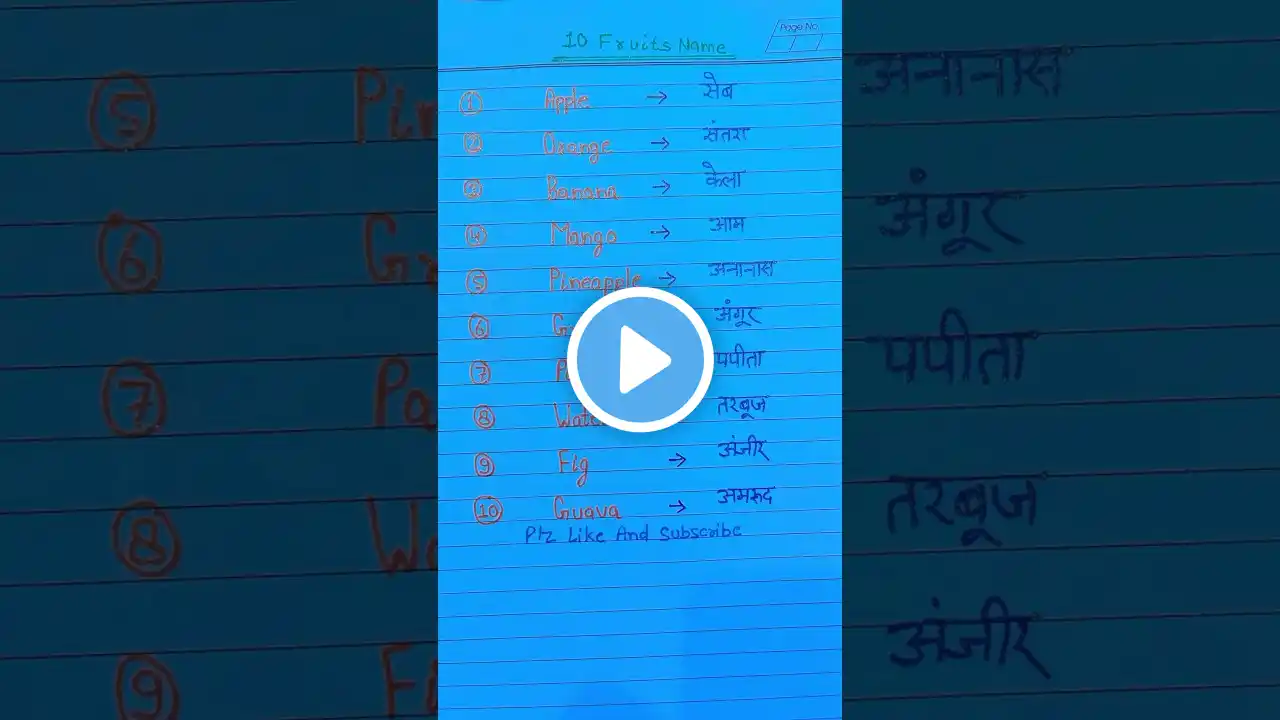 10 Fruits Name
Page No.
① Apple → सेब
② Orange → संतरा
③ Banana → केला
④ Mango → आम
⑤ Pineapple → अनानास
⑥ अंगूर
⑦ पपीता
⑧ तरबूज
⑨ Fig → अंजीर
⑩ Guava → अमरूद
Plz Like And Subscribe